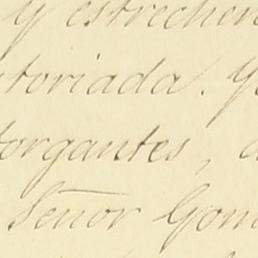 y estrechen
toriada. Y
torgantes, a
Señor Gom